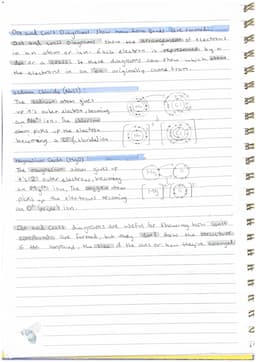 Dot and Cross Diagrams show how Ionic Bonds are formed:
Dot and Cross Diagrams show the arrangement of electrons
in an atom or ion. Each electron is represented by a
dot or a cross. So these diagrams can show which atom
the electrons in an ion originally came from.
Sodium Chloride (NaCl):
The sodium atom gives
up it's outer electron becoming
an Na⁺ ion. The chlorine
atom picks up the electron
becoming a Cl⁻ (chloride) ion
Magnesium Oxide (MgO):
The magnesium atom gives up
it's 2 outer electrons, becoming
an Mg²⁺ ion. The oxygen atom
picks up the electrons becoming
an O²⁻ ion.
Mg
O
Dot and Cross diagrams are useful for showing how ionic
compounds are formed, but they don't show the structure
of the compound, the size of the ions or how they're arranged